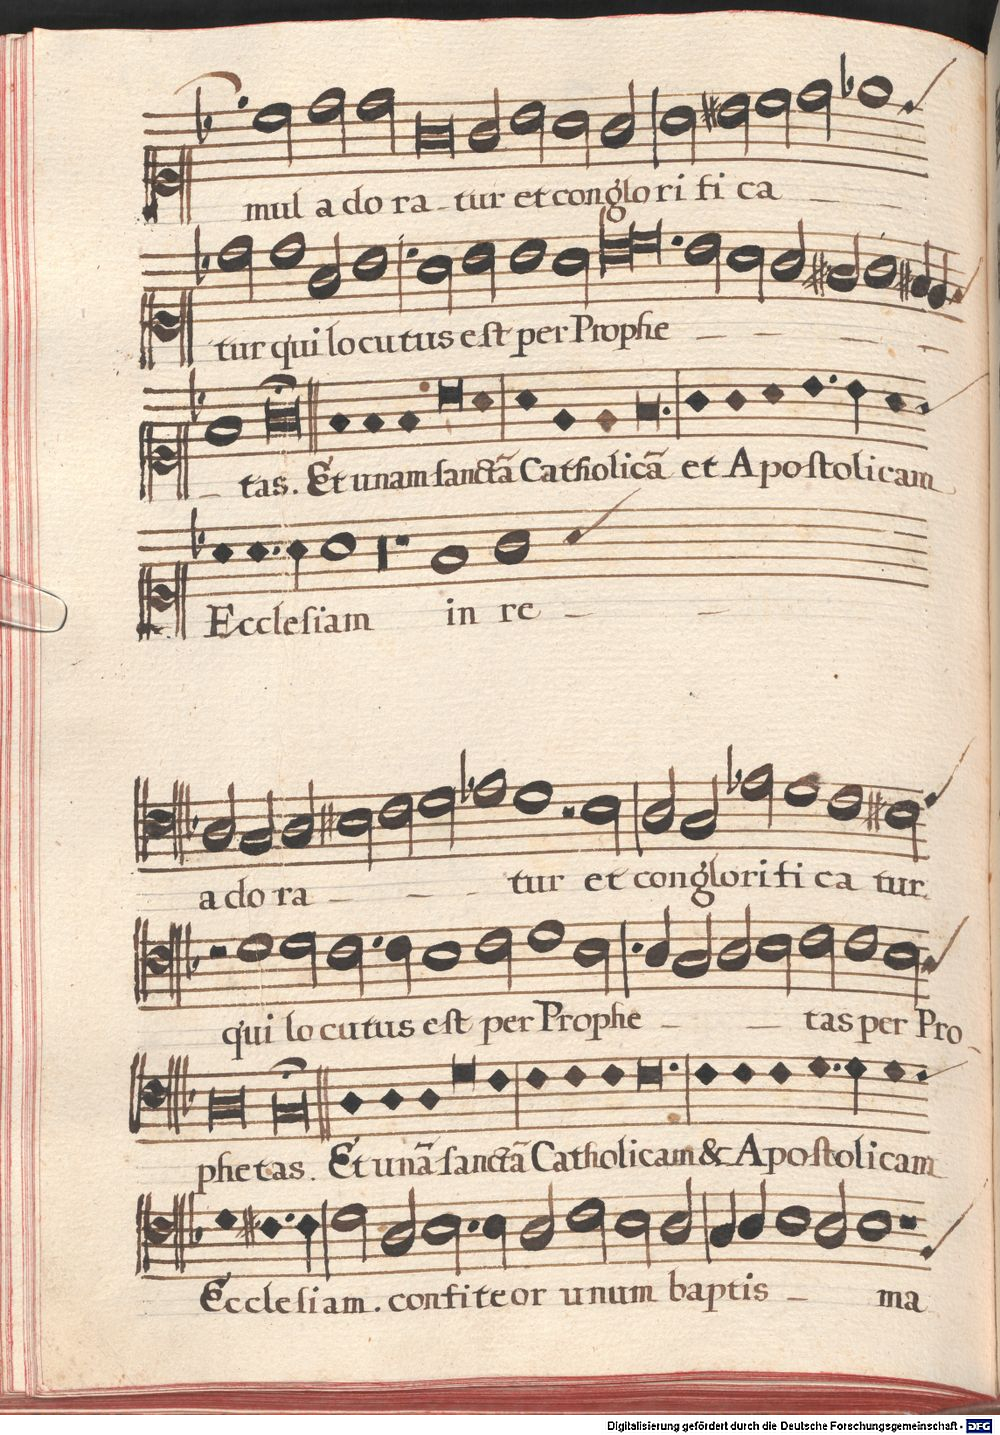 mul adoratur et conglorifica
tur qui locutus est per Prophe
tas. Et unam sanctã Catholicã et Apostolicam
Ecclesiam in re
adora tur et conglorificatur
qui locutus est per Prophe tas per Pro
phetas. Et unã sanctã Catholicam & Apostolicam
Ecclesiam. confiteor unum baptis ma
Digitalisierung gefördert durch die Deutsche Forschungsgemeinschaft - DFG